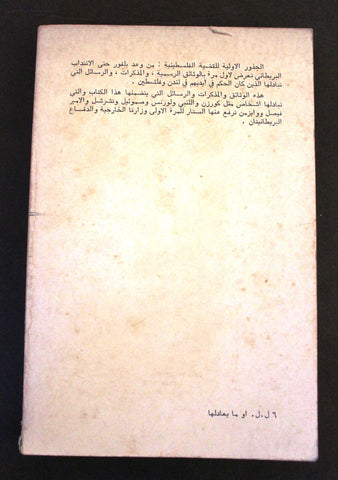 الجذور الاولية للقضية الفلسطينية : من وعد بلفور حتى الانتداب
البريطاني تعرض لاول مرة بالوثائق الرسمية ، والمذكرات ، والرسائل التي
تبادلها الذين كان الحكم في ايديهم في لندن وفلسطين .
هذه الوثائق والمذكرات والرسائل التي يتضمنها هذا الكتاب والتي
تبادلها اشخاص مثل كورزن واللنبي ولورنس وصموئيل وتشرتشل والامير
فيصل ووايزمن ترفع عنها الستار للمرة الاولى وزارتا الخارجية والدفاع
البريطانيتان .
٦ ل.ل. او ما يعادلها